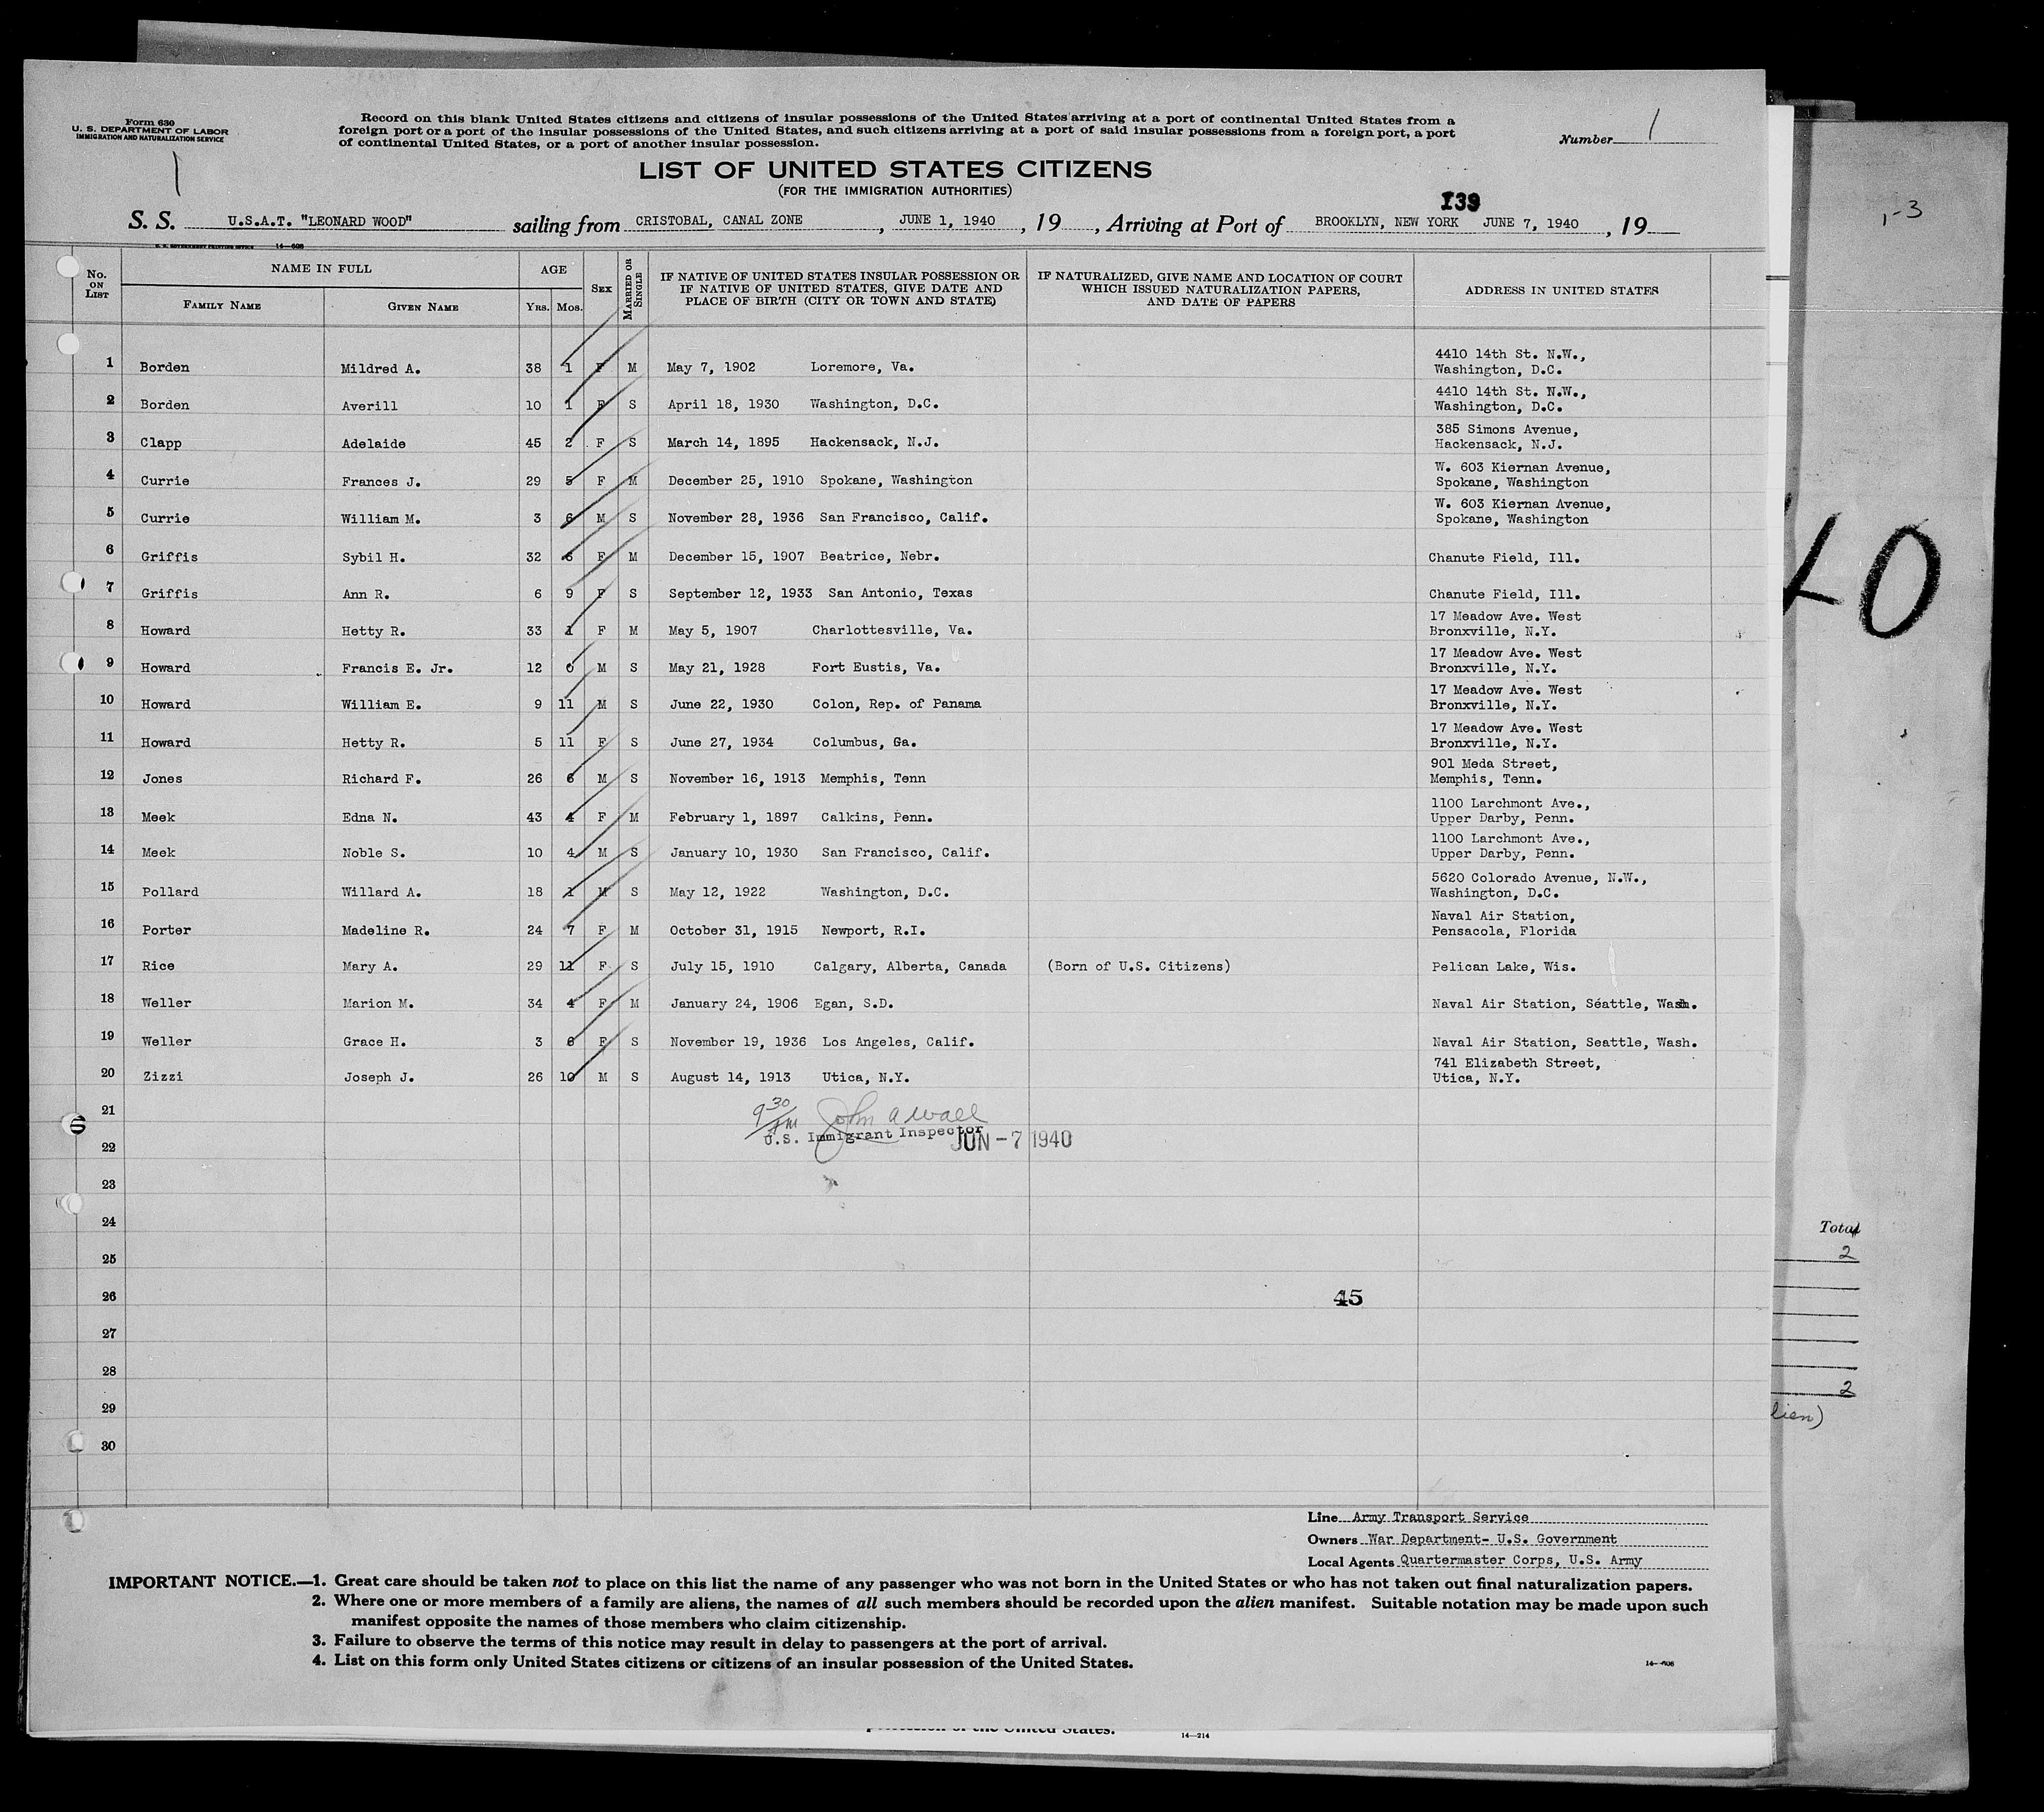 Form 630
U. S. DEPARTMENT OF LABOR
IMMIGRATION AND NATURALIZATION SERVICE
Record on this blank United States citizens and citizens of insular possessions of the United States arriving at a port of continental United States from a
foreign port or a port of the insular possessions of the United States, and such citizens arriving at a port of said insular possessions from a foreign port, a port
of continental United States, or a port of another insular possession.
Number 1
1
LIST OF UNITED STATES CITIZENS
(FOR THE IMMIGRATION AUTHORITIES)
139
1-3
S. S. U.S.A.T. "LEONARD WOOD" sailing from CRISTOBAL, CANAL ZONE, JUNE 1, 1940, 19, Arriving at Port of BROOKLYN, NEW YORK JUNE 7, 1940, 19
U. S. GOVERNMENT PRINTING OFFICE 14—608
No. ON LIST
NAME IN FULL
FAMILY NAME
GIVEN NAME
AGE
YRS. MOS.
SEX
MARRIED OR SINGLE
IF NATIVE OF UNITED STATES INSULAR POSSESSION OR
IF NATIVE OF UNITED STATES, GIVE DATE AND
PLACE OF BIRTH (CITY OR TOWN AND STATE)
IF NATURALIZED, GIVE NAME AND LOCATION OF COURT
WHICH ISSUED NATURALIZATION PAPERS,
AND DATE OF PAPERS
ADDRESS IN UNITED STATES
1 Borden Mildred A. 38 1 F M May 7, 1902 Loremore, Va. 4410 14th St. N.W.,
Washington, D.C.
2 Borden Averill 10 1 F S April 18, 1930 Washington, D.C. 4410 14th St. N.W.,
Washington, D.C.
3 Clapp Adelaide 45 2 F S March 14, 1895 Hackensack, N.J. 385 Simons Avenue,
Hackensack, N.J.
4 Currie Frances J. 29 5 F M December 25, 1910 Spokane, Washington W. 603 Kiernan Avenue,
Spokane, Washington
5 Currie William M. 3 6 M S November 28, 1936 San Francisco, Calif. W. 603 Kiernan Avenue,
Spokane, Washington
6 Griffis Sybil H. 32 6 F M December 15, 1907 Beatrice, Nebr. Chanute Field, Ill.
7 Griffis Ann R. 6 9 F S September 12, 1933 San Antonio, Texas Chanute Field, Ill.
8 Howard Hetty R. 33 1 F M May 5, 1907 Charlottesville, Va. 17 Meadow Ave. West
Bronxville, N.Y.
9 Howard Francis E. Jr. 12 0 M S May 21, 1928 Fort Eustis, Va. 17 Meadow Ave. West
Bronxville, N.Y.
10 Howard William E. 9 11 M S June 22, 1930 Colon, Rep. of Panama 17 Meadow Ave. West
Bronxville, N.Y.
11 Howard Hetty R. 5 11 F S June 27, 1934 Columbus, Ga. 17 Meadow Ave. West
Bronxville, N.Y.
12 Jones Richard F. 26 6 M S November 16, 1913 Memphis, Tenn 901 Meda Street,
Memphis, Tenn.
13 Meek Edna N. 43 4 F M February 1, 1897 Calkins, Penn. 1100 Larchmont Ave.,
Upper Darby, Penn.
14 Meek Noble S. 10 4 M S January 10, 1930 San Francisco, Calif. 1100 Larchmont Ave.,
Upper Darby, Penn.
15 Pollard Willard A. 18 1 M S May 12, 1922 Washington, D.C. 5620 Colorado Avenue, N.W.,
Washington, D.C.
16 Porter Madeline R. 24 7 F M October 31, 1915 Newport, R.I. Naval Air Station,
Pensacola, Florida
17 Rice Mary A. 29 11 F S July 15, 1910 Calgary, Alberta, Canada (Born of U.S. Citizens) Pelican Lake, Wis.
18 Weller Marion M. 34 4 F M January 24, 1906 Egan, S.D. Naval Air Station, Seattle, Wash.
19 Weller Grace H. 3 6 F S November 19, 1936 Los Angeles, Calif. Naval Air Station, Seattle, Wash.
20 Zizzi Joseph J. 26 10 M S August 14, 1913 Utica, N.Y. 741 Elizabeth Street,
Utica, N.Y.
21
9 30 John A Wall
U.S. Immigrant Inspector JUN -7 1940
22
23
24
25
26
45
27
28
29
30
40
Total
2
2
lien)
Line Army Transport Service
Owners War Department- U.S. Government
Local Agents Quartermaster Corps, U.S. Army
IMPORTANT NOTICE.—1. Great care should be taken not to place on this list the name of any passenger who was not born in the United States or who has not taken out final naturalization papers.
2. Where one or more members of a family are aliens, the names of all such members should be recorded upon the alien manifest. Suitable notation may be made upon such
manifest opposite the names of those members who claim citizenship.
3. Failure to observe the terms of this notice may result in delay to passengers at the port of arrival.
4. List on this form only United States citizens or citizens of an insular possession of the United States.
14—608
possession of the United States.
14—214